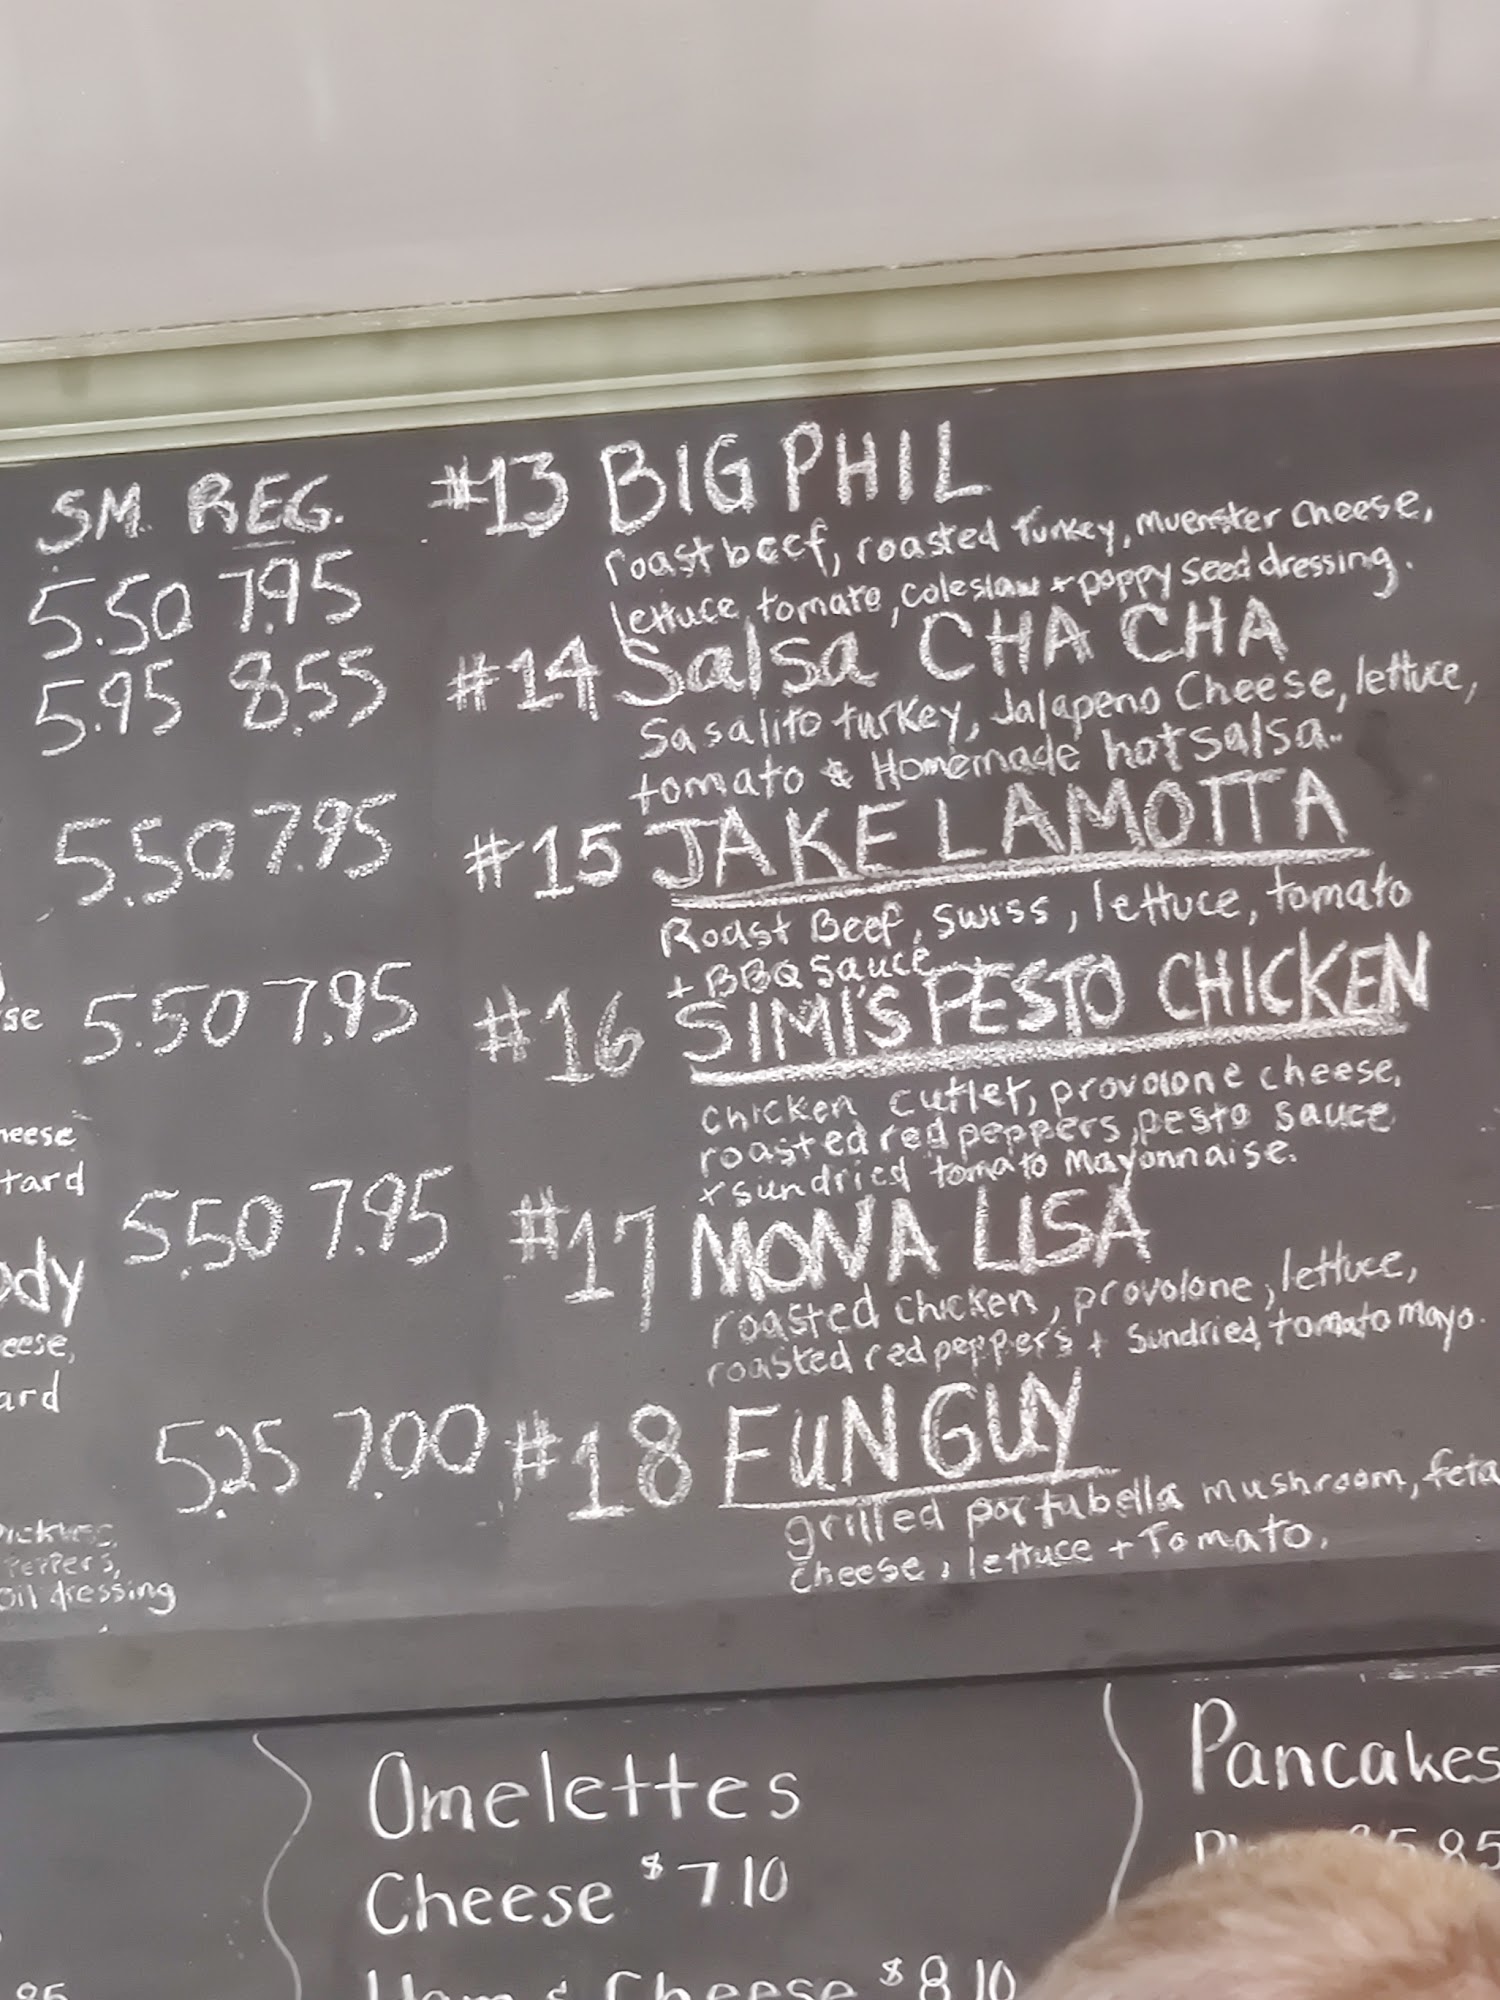 SM. REG.
5.50 7.95
5.95 8.55
5.50 7.95
5.50 7.95
5.50 7.95
5.25 7.00
#13 BIG PHIL
roast beef, roasted Turkey, muenster cheese,
lettuce, tomato, coleslaw + poppy seed dressing.
#14 Salsa CHA CHA
Sasalito turkey, Jalapeno Cheese, lettuce,
tomato & Homemade hot salsa.
#15 JAKE LAMOTTA
Roast Beef, swiss, lettuce, tomato
+ BBQ Sauce
#16 SIMI'S PESTO CHICKEN
chicken cutlet, provolone cheese,
roasted red peppers, pesto sauce
+ sundried tomato Mayonnaise.
#17 MONA LISA
roasted chicken, provolone, lettuce,
roasted red peppers + Sundried tomato mayo.
#18 FUN GUY
grilled portabella mushroom, feta
cheese, lettuce + Tomato.
Oil dressing
Omelettes
Cheese $7.10
Cheese $8.10
Pancakes